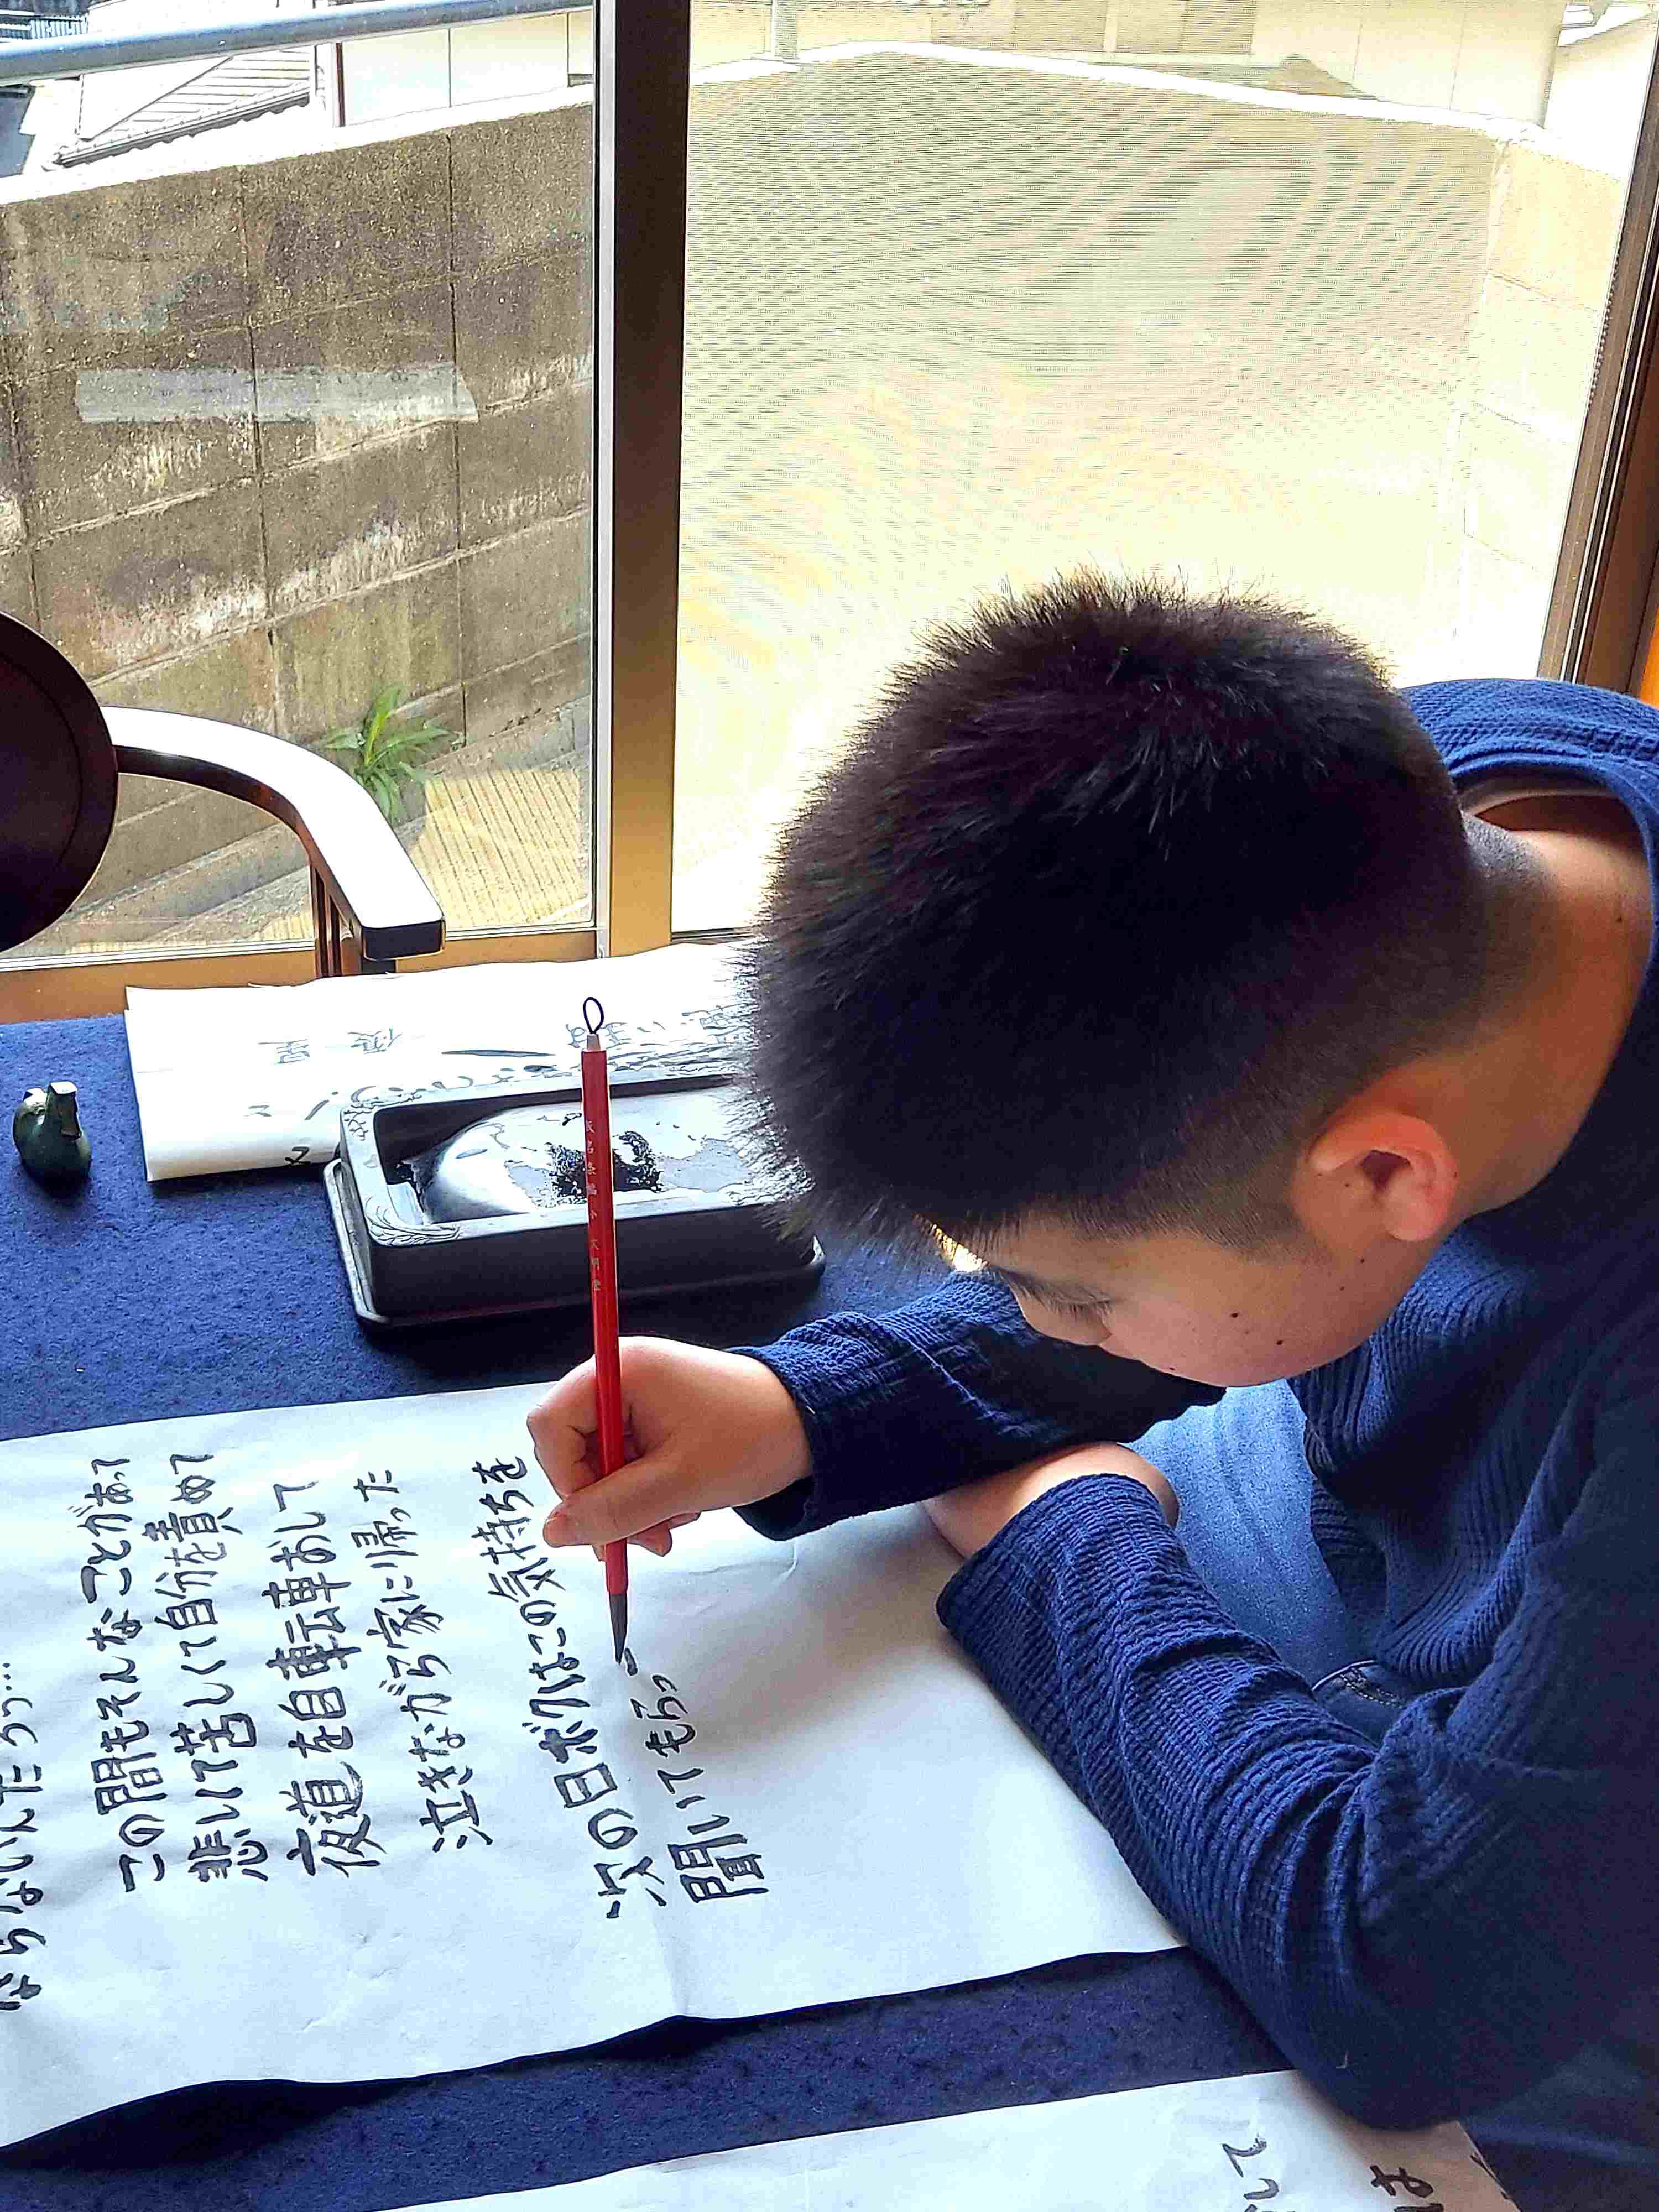 ならないんだろう…
この間もそんなことがあって
悲しくて苦しくて自分を責めて
夜道を自転車おして
泣きながら家に帰った
次の日ボクはこの気持ちを
聞いてもらっ